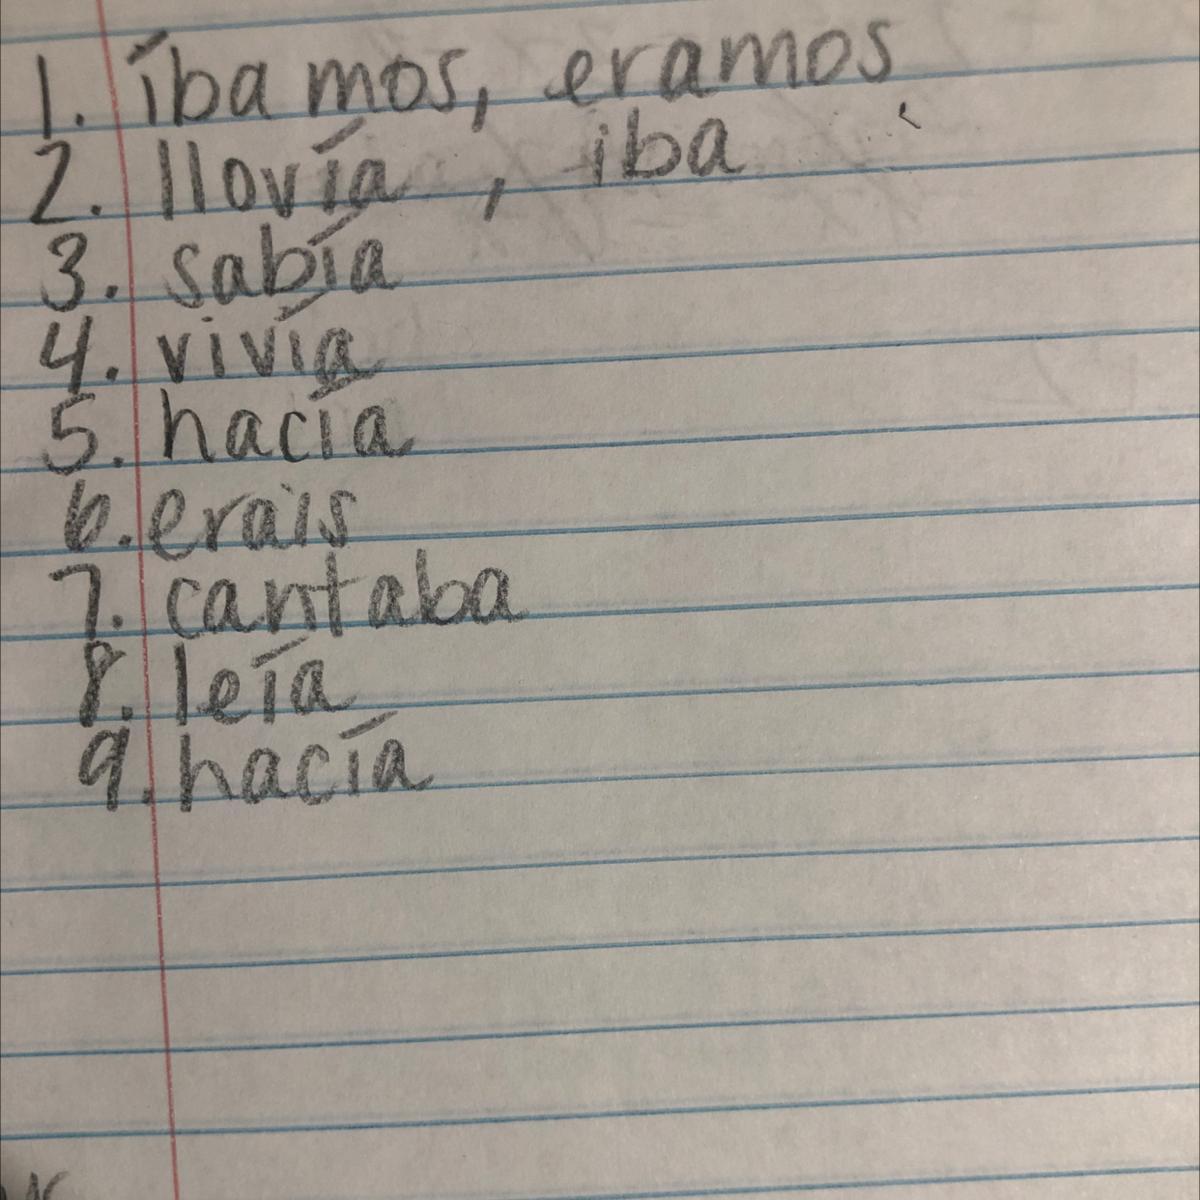 1. íbamos, eramos
2. llovía, iba
3. sabía
4. vivía
5. hacía
6. erais
7. cantaba
8. leía
9. hacía